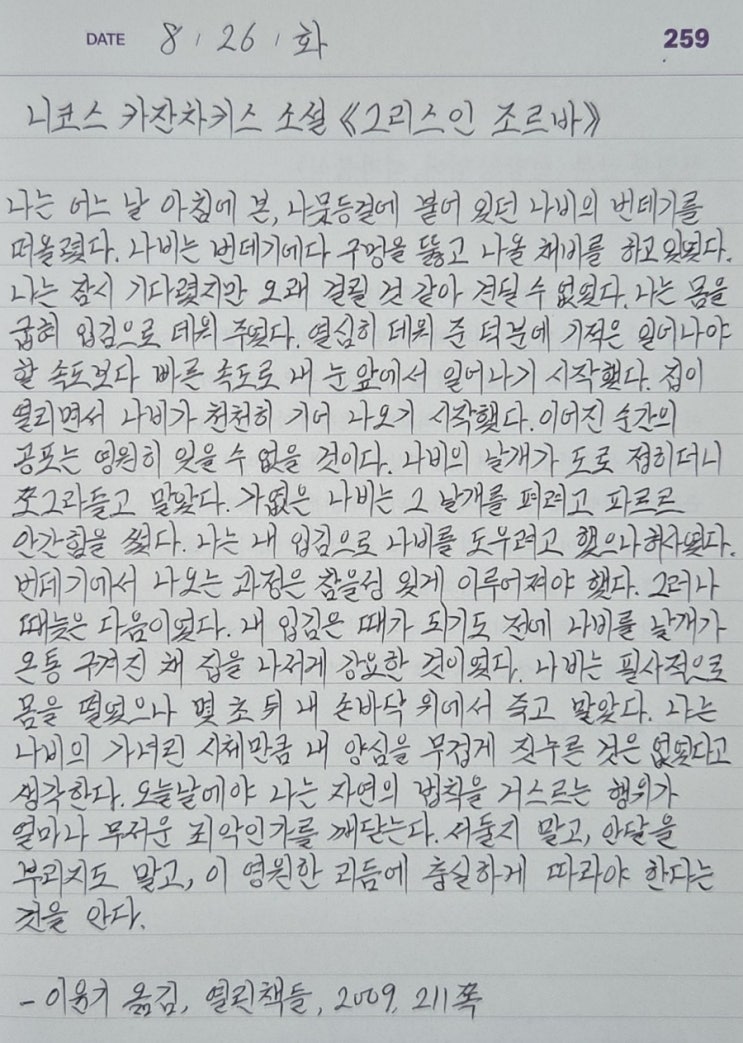 DATE 8 / 26 / 화 259
니코스 카잔차키스 소설 《그리스인 조르바》
나는 어느 날 아침에 본, 나뭇등걸에 붙어 있던 나비의 번데기를
떠올렸다. 나비는 번데기에다 구멍을 뚫고 나올 채비를 하고 있었다.
나는 잠시 기다렸지만 오래 걸릴 것 같아 견딜 수 없었다. 나는 몸을
굽혀 입김으로 데워 주었다. 열심히 데워 준 덕분에 기적은 일어나야
할 속도보다 빠른 속도로 내 눈 앞에서 일어나기 시작했다. 집이
열리면서 나비가 천천히 기어 나오기 시작했다. 이어진 순간의
공포는 영원히 잊을 수 없을 것이다. 나비의 날개가 도로 접히더니
쪼그라들고 말았다. 가엾은 나비는 그 날개를 펴려고 파르르
안간힘을 썼다. 나는 내 입김으로 나비를 도우려고 했으나 허사였다.
번데기에서 나오는 과정은 참을성 있게 이루어져야 했다. 그러나
때늦은 다음이었다. 내 입김은 때가 되기도 전에 나비를 날개가
온통 구겨진 채 집을 나서게 강요한 것이었다. 나비는 필사적으로
몸을 떨었으나 몇 초 뒤 내 손바닥 위에서 죽고 말았다. 나는
나비의 가녀린 시체만큼 내 양심을 무겁게 짓누른 것은 없었다고
생각한다. 오늘날에야 나는 자연의 법칙을 거스르는 행위가
얼마나 무서운 죄악인가를 깨닫는다. 서둘지 말고, 안달을
부리지도 말고, 이 영원한 리듬에 충실하게 따라야 한다는
것을 안다.
- 이윤기 옮김, 열린책들, 2009, 211쪽